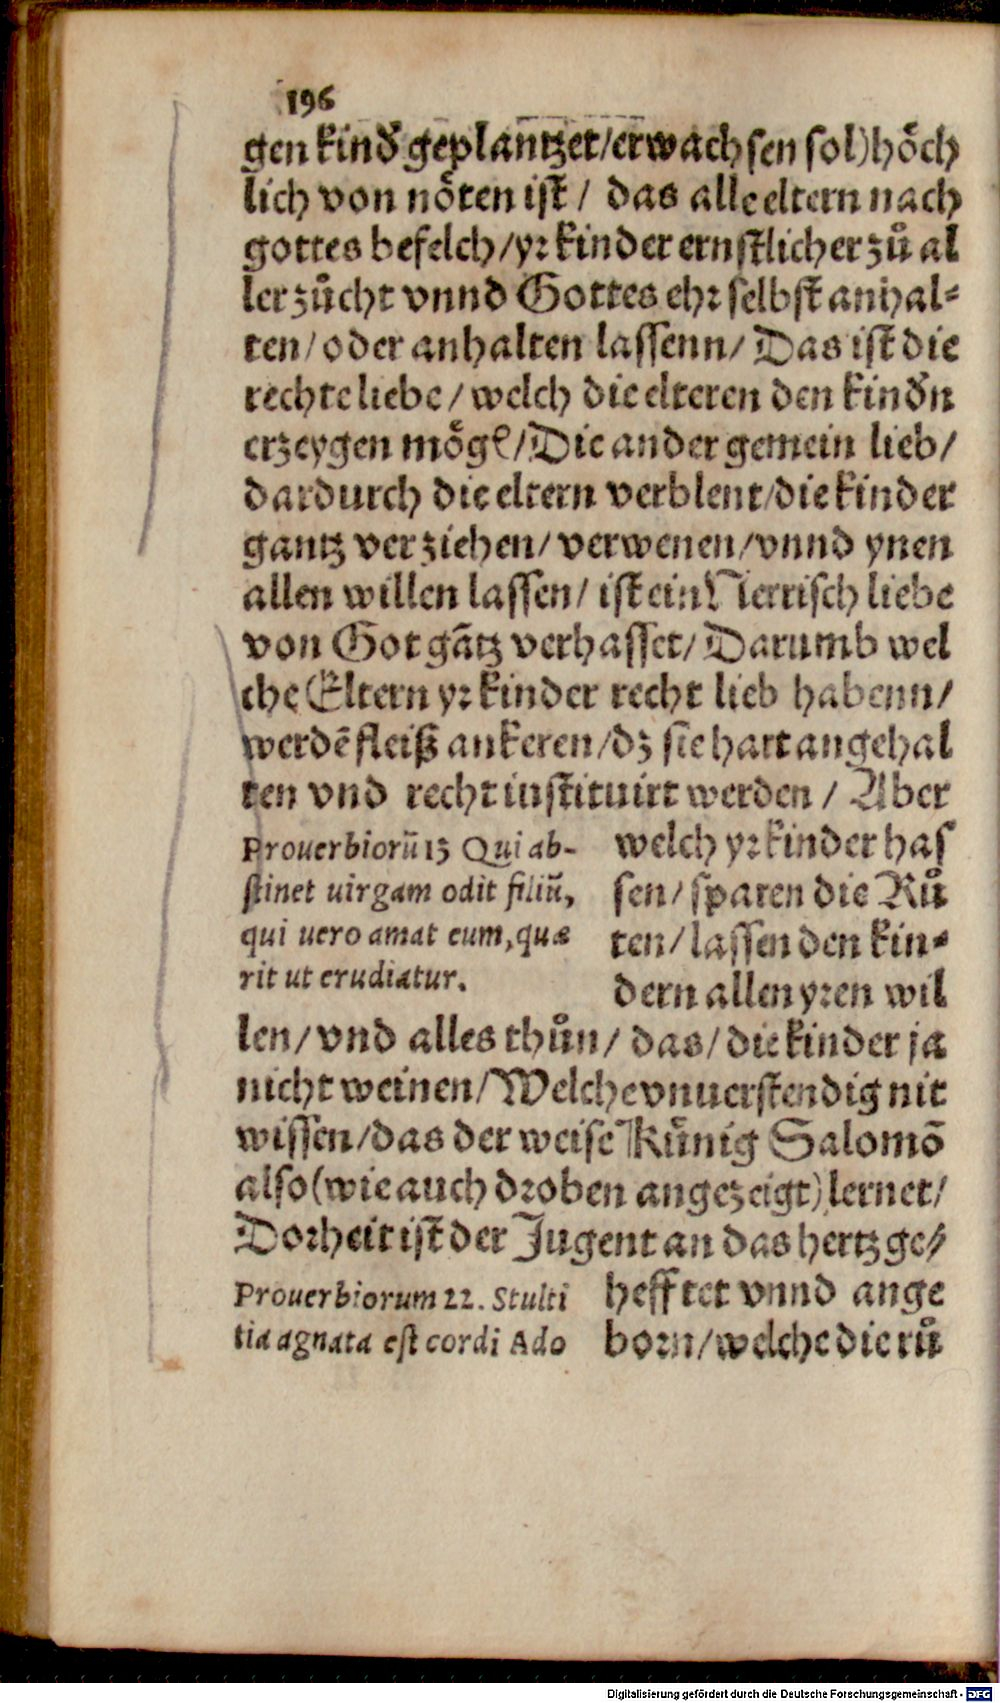 196
gen kinď geplantzet/erwachsen sol)hoͤch
lich von noͤten ist / das alle eltern nach
gottes befelch/yꝛ kinder ernstlicher zů al
ler zůcht vnnd Gottes ehꝛ selbst anhal⸗
ten/oder anhalten lassenn/ Das ist die
rechte liebe / welch die elteren den kinďn
erzeygen moͤgē/Die ander gemein lieb/
dardurch die eltern verblent/die kinder
gantz verziehen/verwenen/vnnd ynen
allen willen lassen/ ist ein Nerrisch liebe
von Got gātz verhasset/Darumb wel
che Eltern yꝛ kinder recht lieb habenn/
werdē fleiß ankeren/dz sie hart angehal
ten vnd recht instituirt werden / Aber
welch yꝛ kinder has
sen/ sparen die Rů
ten/ lassen den kin⸗
dern allen yꝛen wil
Prouerbiorū 13 Qui ab-
stinet uirgam odit filiū,
qui uero amat eum, quæ
rit ut erudiatur.
len/ vnd alles thůn/ das/ die kinder ja
nicht weinen/Welche vnuerstendig nit
wissen/das der weise Künig Salomō
also(wie auch dꝛoben angezeigt) lernet/
Doꝛheit ist der Jugent an das hertz ge⸗
hefftet vnnd ange
boꝛn/welche die rů
Prouerbiorum 22. Stulti
tia agnata est cordi Ado
Digitalisierung gefördert durch die Deutsche Forschungsgemeinschaft - DFG